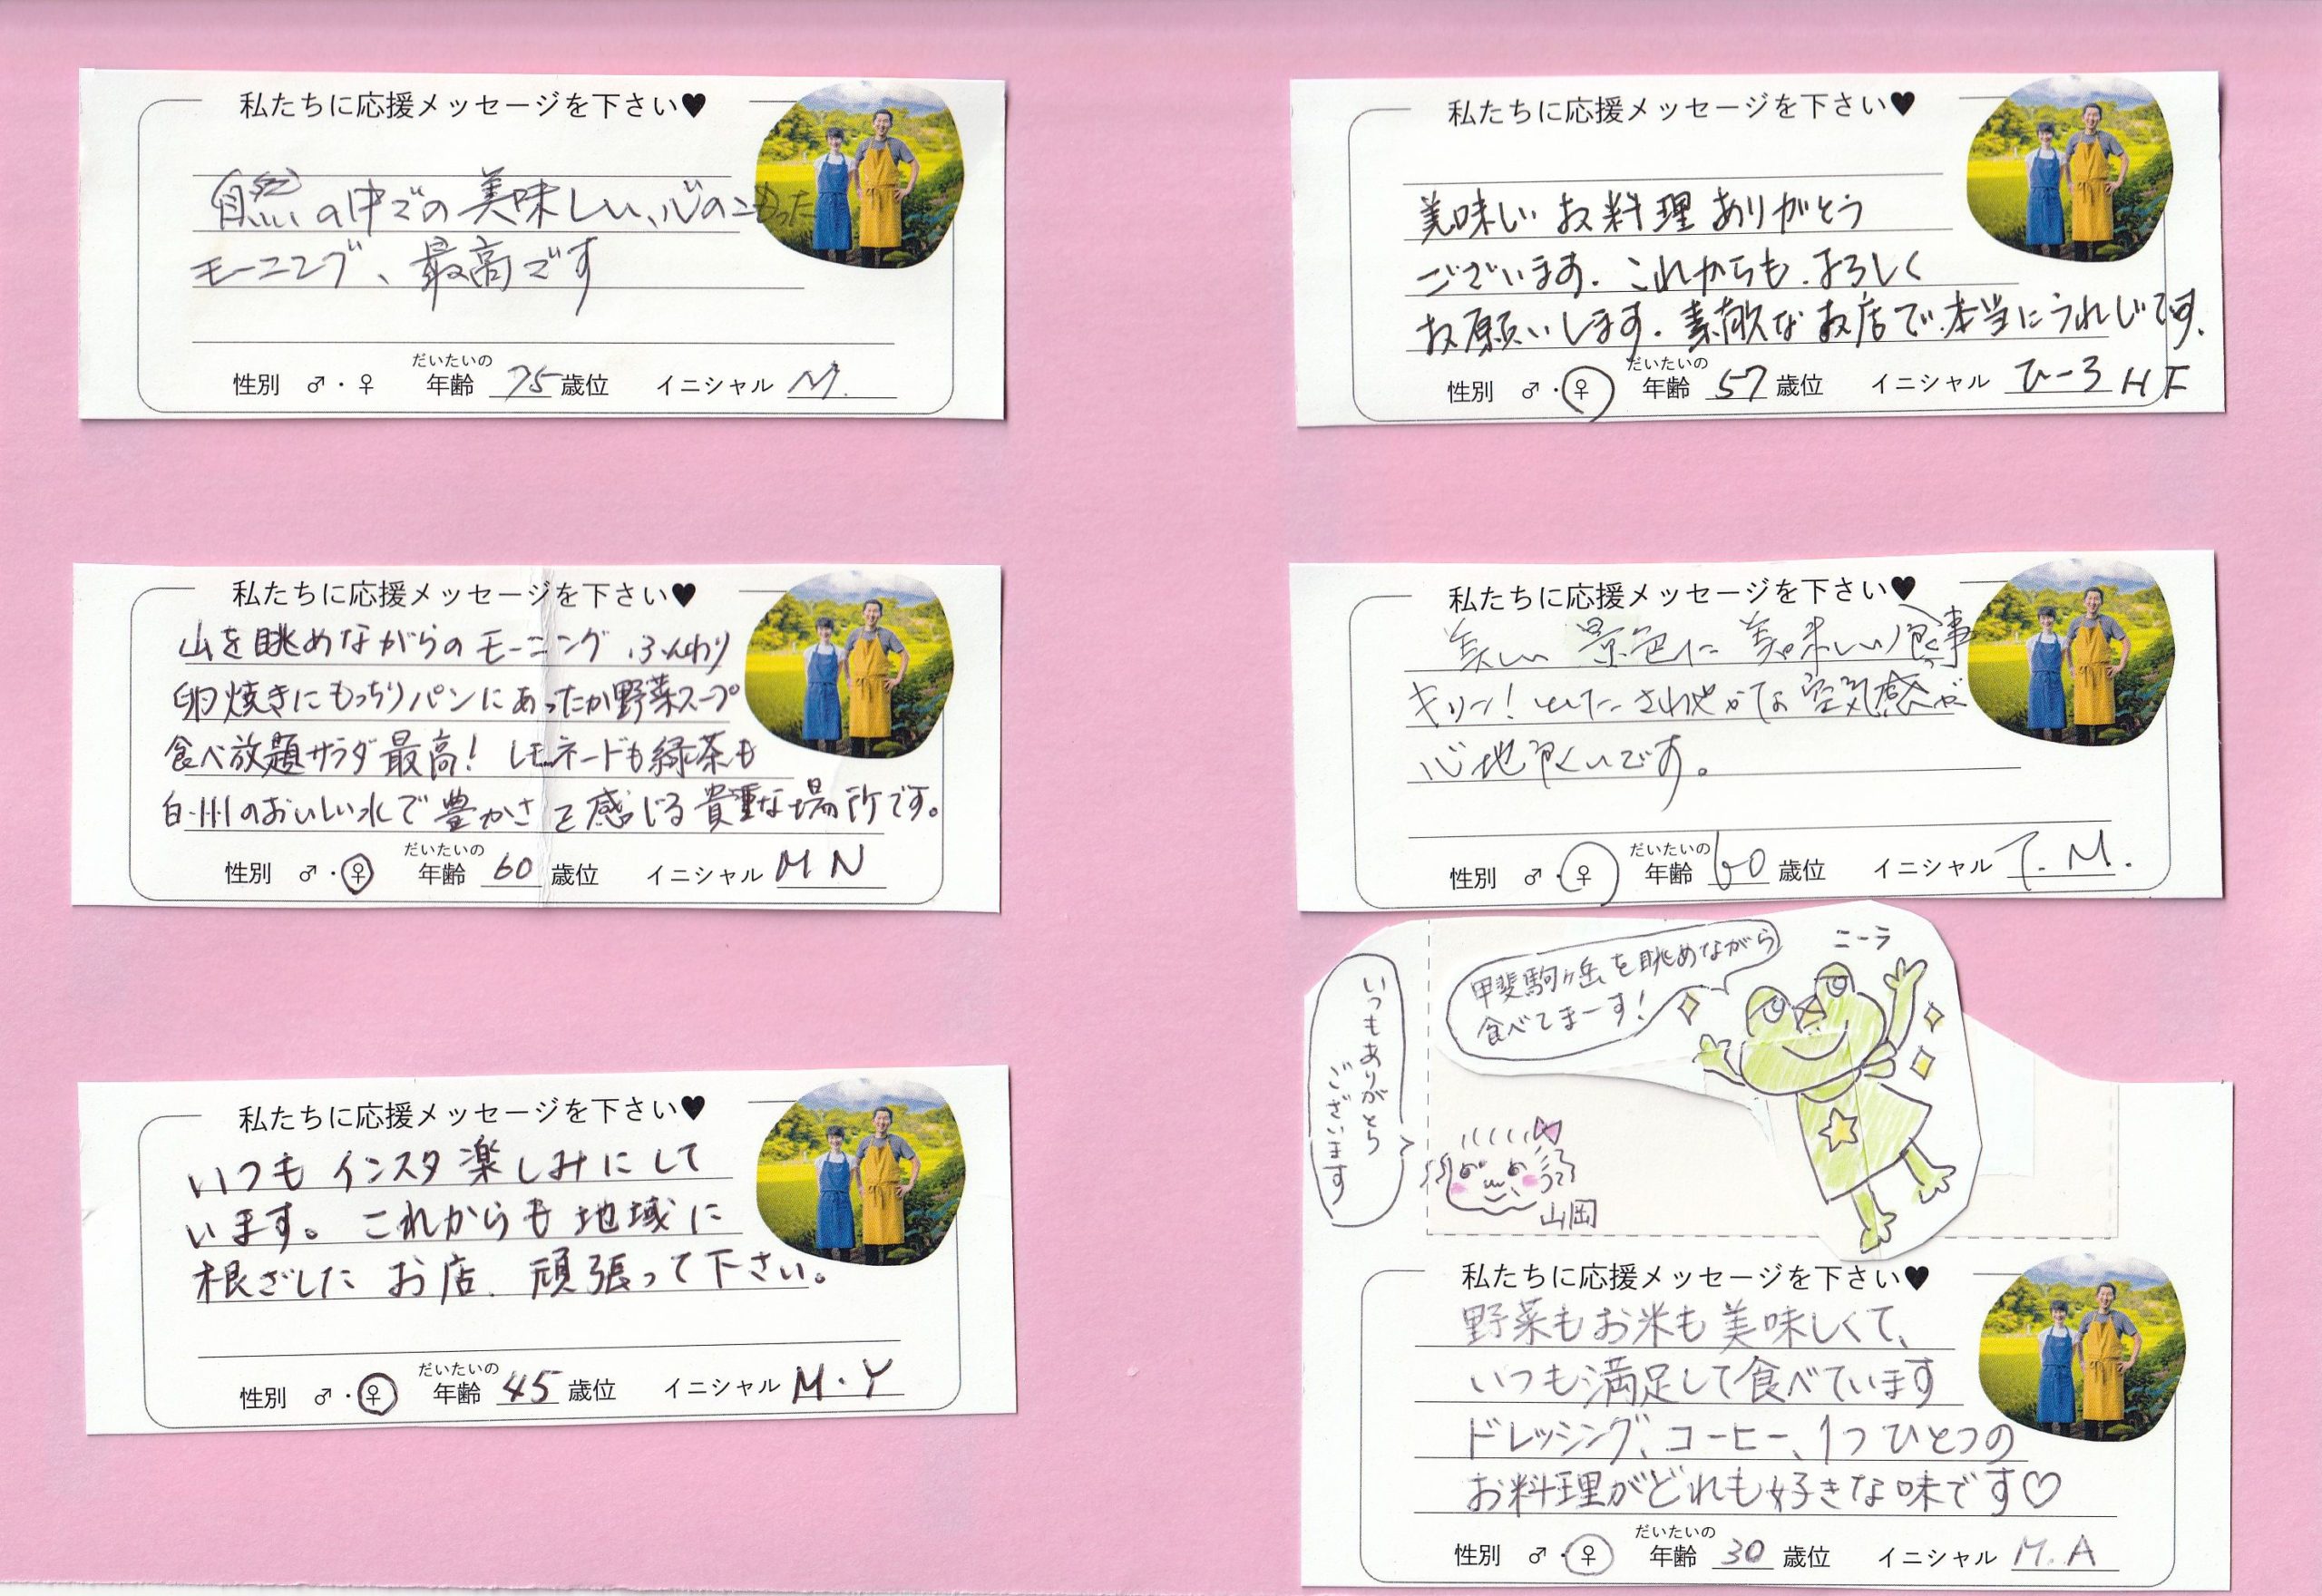 私たちに応援メッセージを下さい♥
自然の中での美味しい、心のこもった
モーニング、最高です
性別 ♂・♀ だいたいの年齢 75 歳位 イニシャル M.
私たちに応援メッセージを下さい♥
美味しいお料理ありがとう
ございます. これからも.よろしく
お願いします. 素敵なお店で.本当にうれしいです.
性別 ♂・♀ だいたいの年齢 57 歳位 イニシャル ひーろ HF
私たちに応援メッセージを下さい♥
山を眺めながらのモーニング ふんわり
卵焼きにもっちりパンにあったか野菜スープ
食べ放題サラダ最高! レモネードも緑茶も
白州のおいしい水で豊かさを感じる貴重な場所です。
性別 ♂・♀ だいたいの年齢 60 歳位 イニシャル M N
私たちに応援メッセージを下さい♥
美しい景色に美味しい食事
キリッ!とした さわやかな空気感が
心地良いです。
性別 ♂・♀ だいたいの年齢 60 歳位 イニシャル T.M.
私たちに応援メッセージを下さい♥
いつもインスタ楽しみにして
います。これからも地域に
根ざしたお店、頑張って下さい。
性別 ♂・♀ だいたいの年齢 45 歳位 イニシャル M・Y
いつもありがとう
ございます
甲斐駒ヶ岳を眺めながら
食べてまーす!
ニーラ
山岡
私たちに応援メッセージを下さい♥
野菜もお米も美味しくて、
いつも満足して食べています
ドレッシング、コーヒー、1つひとつの
お料理がどれも好きな味です♡
性別 ♂・♀ だいたいの年齢 30 歳位 イニシャル M.A